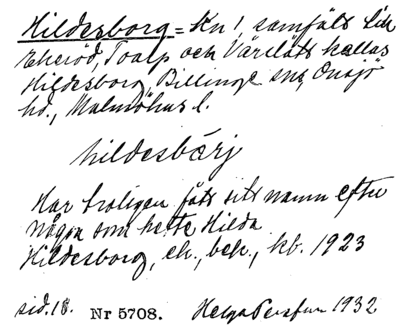 Hildesborg = Kn 1, samfält Lilla
Ekeröd, Toarp och Värslätt kallas
Hildesborg, Billinge sn, Onsjö
hd., Malmöhus l.
hildesbårj
Har troligen fått sitt namn efter
någon som hette Hilda
Hildesborg, eh., beb., kb. 1923
sid. 18. Nr 5708. Helga Persson 1932